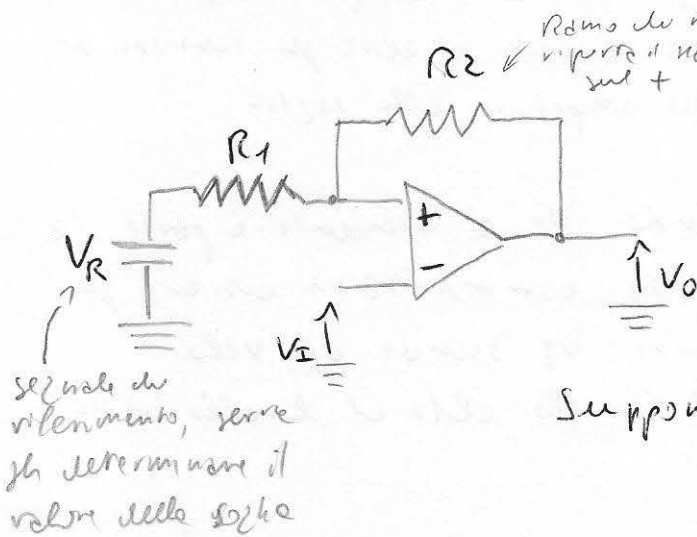 Ramo di
riporta il
sul +
R2
R1
+
-
VR
VI
VO
segnale di
riferimento, serve
per determinare il
valore della soglia
Suppon